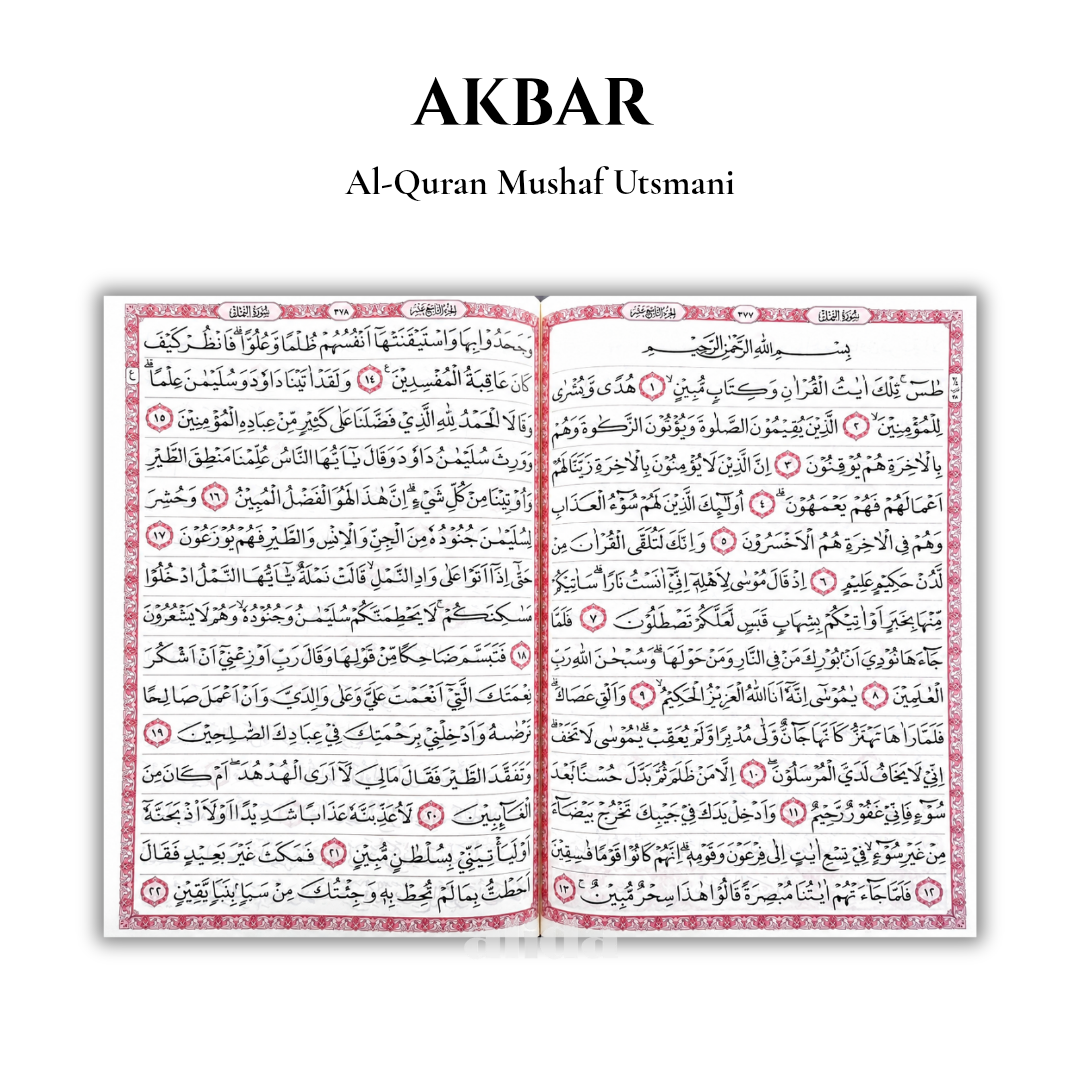 AKBAR
Al-Quran Mushaf Utsmani
سُورَةُ النَّمْلِ ٣٧٧ الجُزْءُ التَّاسِعُ عَشَرَ
بِسْمِ اللّٰهِ الرَّحْمٰنِ الرَّحِيْمِ
طٰسۤ ۚ تِلْكَ اٰيٰتُ الْقُرْاٰنِ وَكِتَابٍ مُّبِيْنٍ ۙ ١ هُدًى وَّبُشْرٰى
لِلْمُؤْمِنِيْنَ ۙ ٢ الَّذِيْنَ يُقِيْمُوْنَ الصَّلٰوةَ وَيُؤْتُوْنَ الزَّكٰوةَ وَهُمْ
بِالْاٰخِرَةِ هُمْ يُوْقِنُوْنَ ٣ اِنَّ الَّذِيْنَ لَا يُؤْمِنُوْنَ بِالْاٰخِرَةِ زَيَّنَّا لَهُمْ
اَعْمَالَهُمْ فَهُمْ يَعْمَهُوْنَ ۗ ٤ اُولٰۤىِٕكَ الَّذِيْنَ لَهُمْ سُوْۤءُ الْعَذَابِ
وَهُمْ فِى الْاٰخِرَةِ هُمُ الْاَخْسَرُوْنَ ٥ وَاِنَّكَ لَتُلَقَّى الْقُرْاٰنَ مِنْ
لَّدُنْ حَكِيْمٍ عَلِيْمٍ ٦ اِذْ قَالَ مُوْسٰى لِاَهْلِهٖٓ اِنِّيْٓ اٰنَسْتُ نَارًاۗ سَاٰتِيْكُمْ
مِّنْهَا بِخَبَرٍ اَوْ اٰتِيْكُمْ بِشِهَابٍ قَبَسٍ لَّعَلَّكُمْ تَصْطَلُوْنَ ٧ فَلَمَّا
جَاۤءَهَا نُوْدِيَ اَنْۢ بُوْرِكَ مَنْ فِى النَّارِ وَمَنْ حَوْلَهَاۗ وَسُبْحٰنَ اللّٰهِ رَبِّ
الْعٰلَمِيْنَ ٨ يٰمُوْسٰٓى اِنَّهٗٓ اَنَا اللّٰهُ الْعَزِيْزُ الْحَكِيْمُ ۙ ٩ وَاَلْقِ عَصَاكَۗ
فَلَمَّا رَاٰهَا تَهْتَزُّ كَاَنَّهَا جَاۤنٌّ وَّلّٰى مُدْبِرًا وَّلَمْ يُعَقِّبْۗ يٰمُوْسٰى لَا تَخَفْۗ
اِنِّيْ لَا يَخَافُ لَدَيَّ الْمُرْسَلُوْنَ ۖ ١٠ اِلَّا مَنْ ظَلَمَ ثُمَّ بَدَّلَ حُسْنًاۢ بَعْدَ
سُوْۤءٍ فَاِنِّيْ غَفُوْرٌ رَّحِيْمٌ ١١ وَاَدْخِلْ يَدَكَ فِيْ جَيْبِكَ تَخْرُجْ بَيْضَاۤءَ
مِنْ غَيْرِ سُوْۤءٍۙ فِيْ تِسْعِ اٰيٰتٍ اِلٰى فِرْعَوْنَ وَقَوْمِهٖۗ اِنَّهُمْ كَانُوْا قَوْمًا فٰسِقِيْنَ
١٢ فَلَمَّا جَاۤءَتْهُمْ اٰيٰتُنَا مُبْصِرَةً قَالُوْا هٰذَا سِحْرٌ مُّبِيْنٌ ۚ ١٣
الجُزْءُ التَّاسِعُ عَشَرَ ٣٧٨ سُورَةُ النَّمْلِ
وَجَحَدُوْا بِهَا وَاسْتَيْقَنَتْهَآ اَنْفُسُهُمْ ظُلْمًا وَّعُلُوًّاۗ فَانْظُرْ كَيْفَ
كَانَ عَاقِبَةُ الْمُفْسِدِيْنَ ࣖ ١٤ وَلَقَدْ اٰتَيْنَا دَاوٗدَ وَسُلَيْمٰنَ عِلْمًاۗ
وَقَالَا الْحَمْدُ لِلّٰهِ الَّذِيْ فَضَّلَنَا عَلٰى كَثِيْرٍ مِّنْ عِبَادِهِ الْمُؤْمِنِيْنَ ١٥
وَوَرِثَ سُلَيْمٰنُ دَاوٗدَ وَقَالَ يٰٓاَيُّهَا النَّاسُ عُلِّمْنَا مَنْطِقَ الطَّيْرِ
وَاُوْتِيْنَا مِنْ كُلِّ شَيْءٍۗ اِنَّ هٰذَا لَهُوَ الْفَضْلُ الْمُبِيْنُ ١٦ وَحُشِرَ
لِسُلَيْمٰنَ جُنُوْدُهٗ مِنَ الْجِنِّ وَالْاِنْسِ وَالطَّيْرِ فَهُمْ يُوْزَعُوْنَ ١٧
حَتّٰىٓ اِذَآ اَتَوْا عَلٰى وَادِ النَّمْلِۙ قَالَتْ نَمْلَةٌ يّٰٓاَيُّهَا النَّمْلُ ادْخُلُوْا
مَسٰكِنَكُمْۚ لَا يَحْطِمَنَّكُمْ سُلَيْمٰنُ وَجُنُوْدُهٗۙ وَهُمْ لَا يَشْعُرُوْنَ
١٨ فَتَبَسَّمَ ضَاحِكًا مِّنْ قَوْلِهَا وَقَالَ رَبِّ اَوْزِعْنِيْٓ اَنْ اَشْكُرَ
نِعْمَتَكَ الَّتِيْٓ اَنْعَمْتَ عَلَيَّ وَعَلٰى وَالِدَيَّ وَاَنْ اَعْمَلَ صَالِحًا
تَرْضٰىهُ وَاَدْخِلْنِيْ بِرَحْمَتِكَ فِيْ عِبَادِكَ الصّٰلِحِيْنَ ١٩
وَتَفَقَّدَ الطَّيْرَ فَقَالَ مَا لِيَ لَآ اَرَى الْهُدْهُدَۖ اَمْ كَانَ مِنَ
الْغَاۤىِٕبِيْنَ ٢٠ لَاُعَذِّبَنَّهٗ عَذَابًا شَدِيْدًا اَوْ لَاَا۟ذْبَحَنَّهٗٓ
اَوْ لَيَأْتِيَنِّيْ بِسُلْطٰنٍ مُّبِيْنٍ ٢١ فَمَكَثَ غَيْرَ بَعِيْدٍ فَقَالَ
اَحَطْتُّ بِمَا لَمْ تُحِطْ بِهٖ وَجِئْتُكَ مِنْ سَبَاٍۢ بِنَبَاٍ يَّقِيْنٍ ٢٢
ع